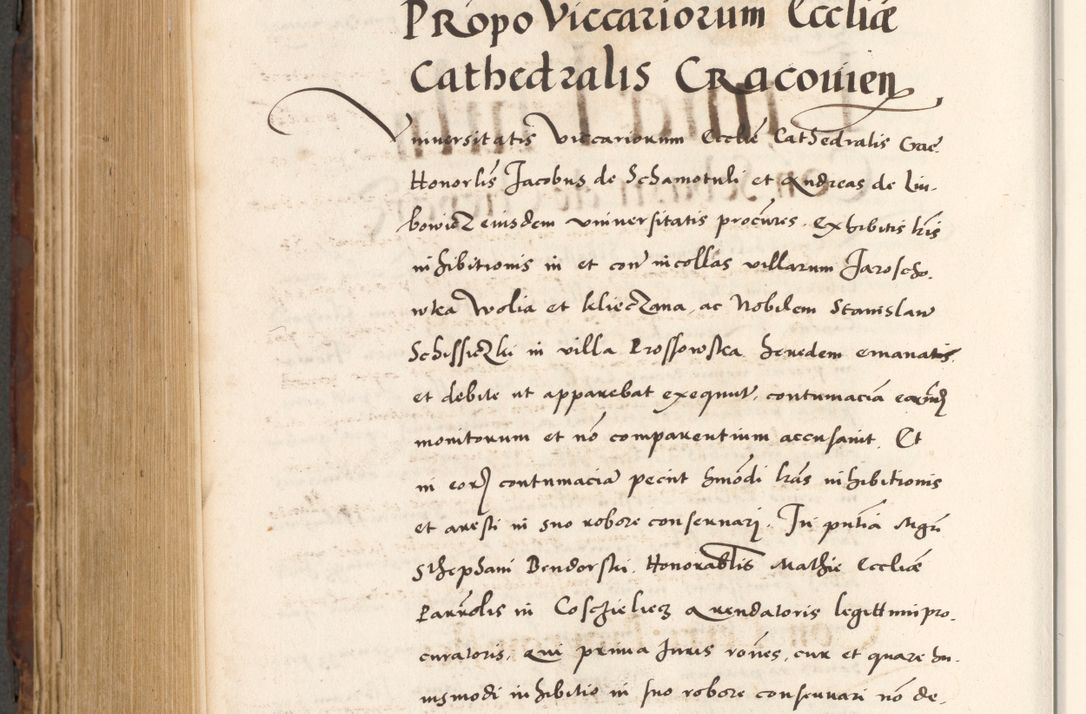 Propo Viccariorum Eccliæ
Cathedralis Cracovien
Vniversitatis Viccariorum Ecclie Cathedralis Crae.
Honorlis Jacobus de Schamotuli et Andreas de Lu-
bowicz eiusdem universitatis procures. Exhibitis lris
inhibitionis in et con incollas villarum Jaroscho.
wka Wolia et kliecZana, ac Nobilem Stanislaw
in villa Brossowska heredem emanatis
et debite ut apparebat exequut, contumacia
monitorum et no comparentium accusavit. Et
in eor contumacia peciit hmodi lras inhibitionis
et aresti in suo robore conservari. In pntia Mgri
Sthephani Bendorski. Honorablis Mathie Eccliæ
Parrolis in Arendatoris legittimi pro.
curatoris, qui primia Juris rones, cur et quare hu.
iusmodi inhibitio in suo robore conservari no de.